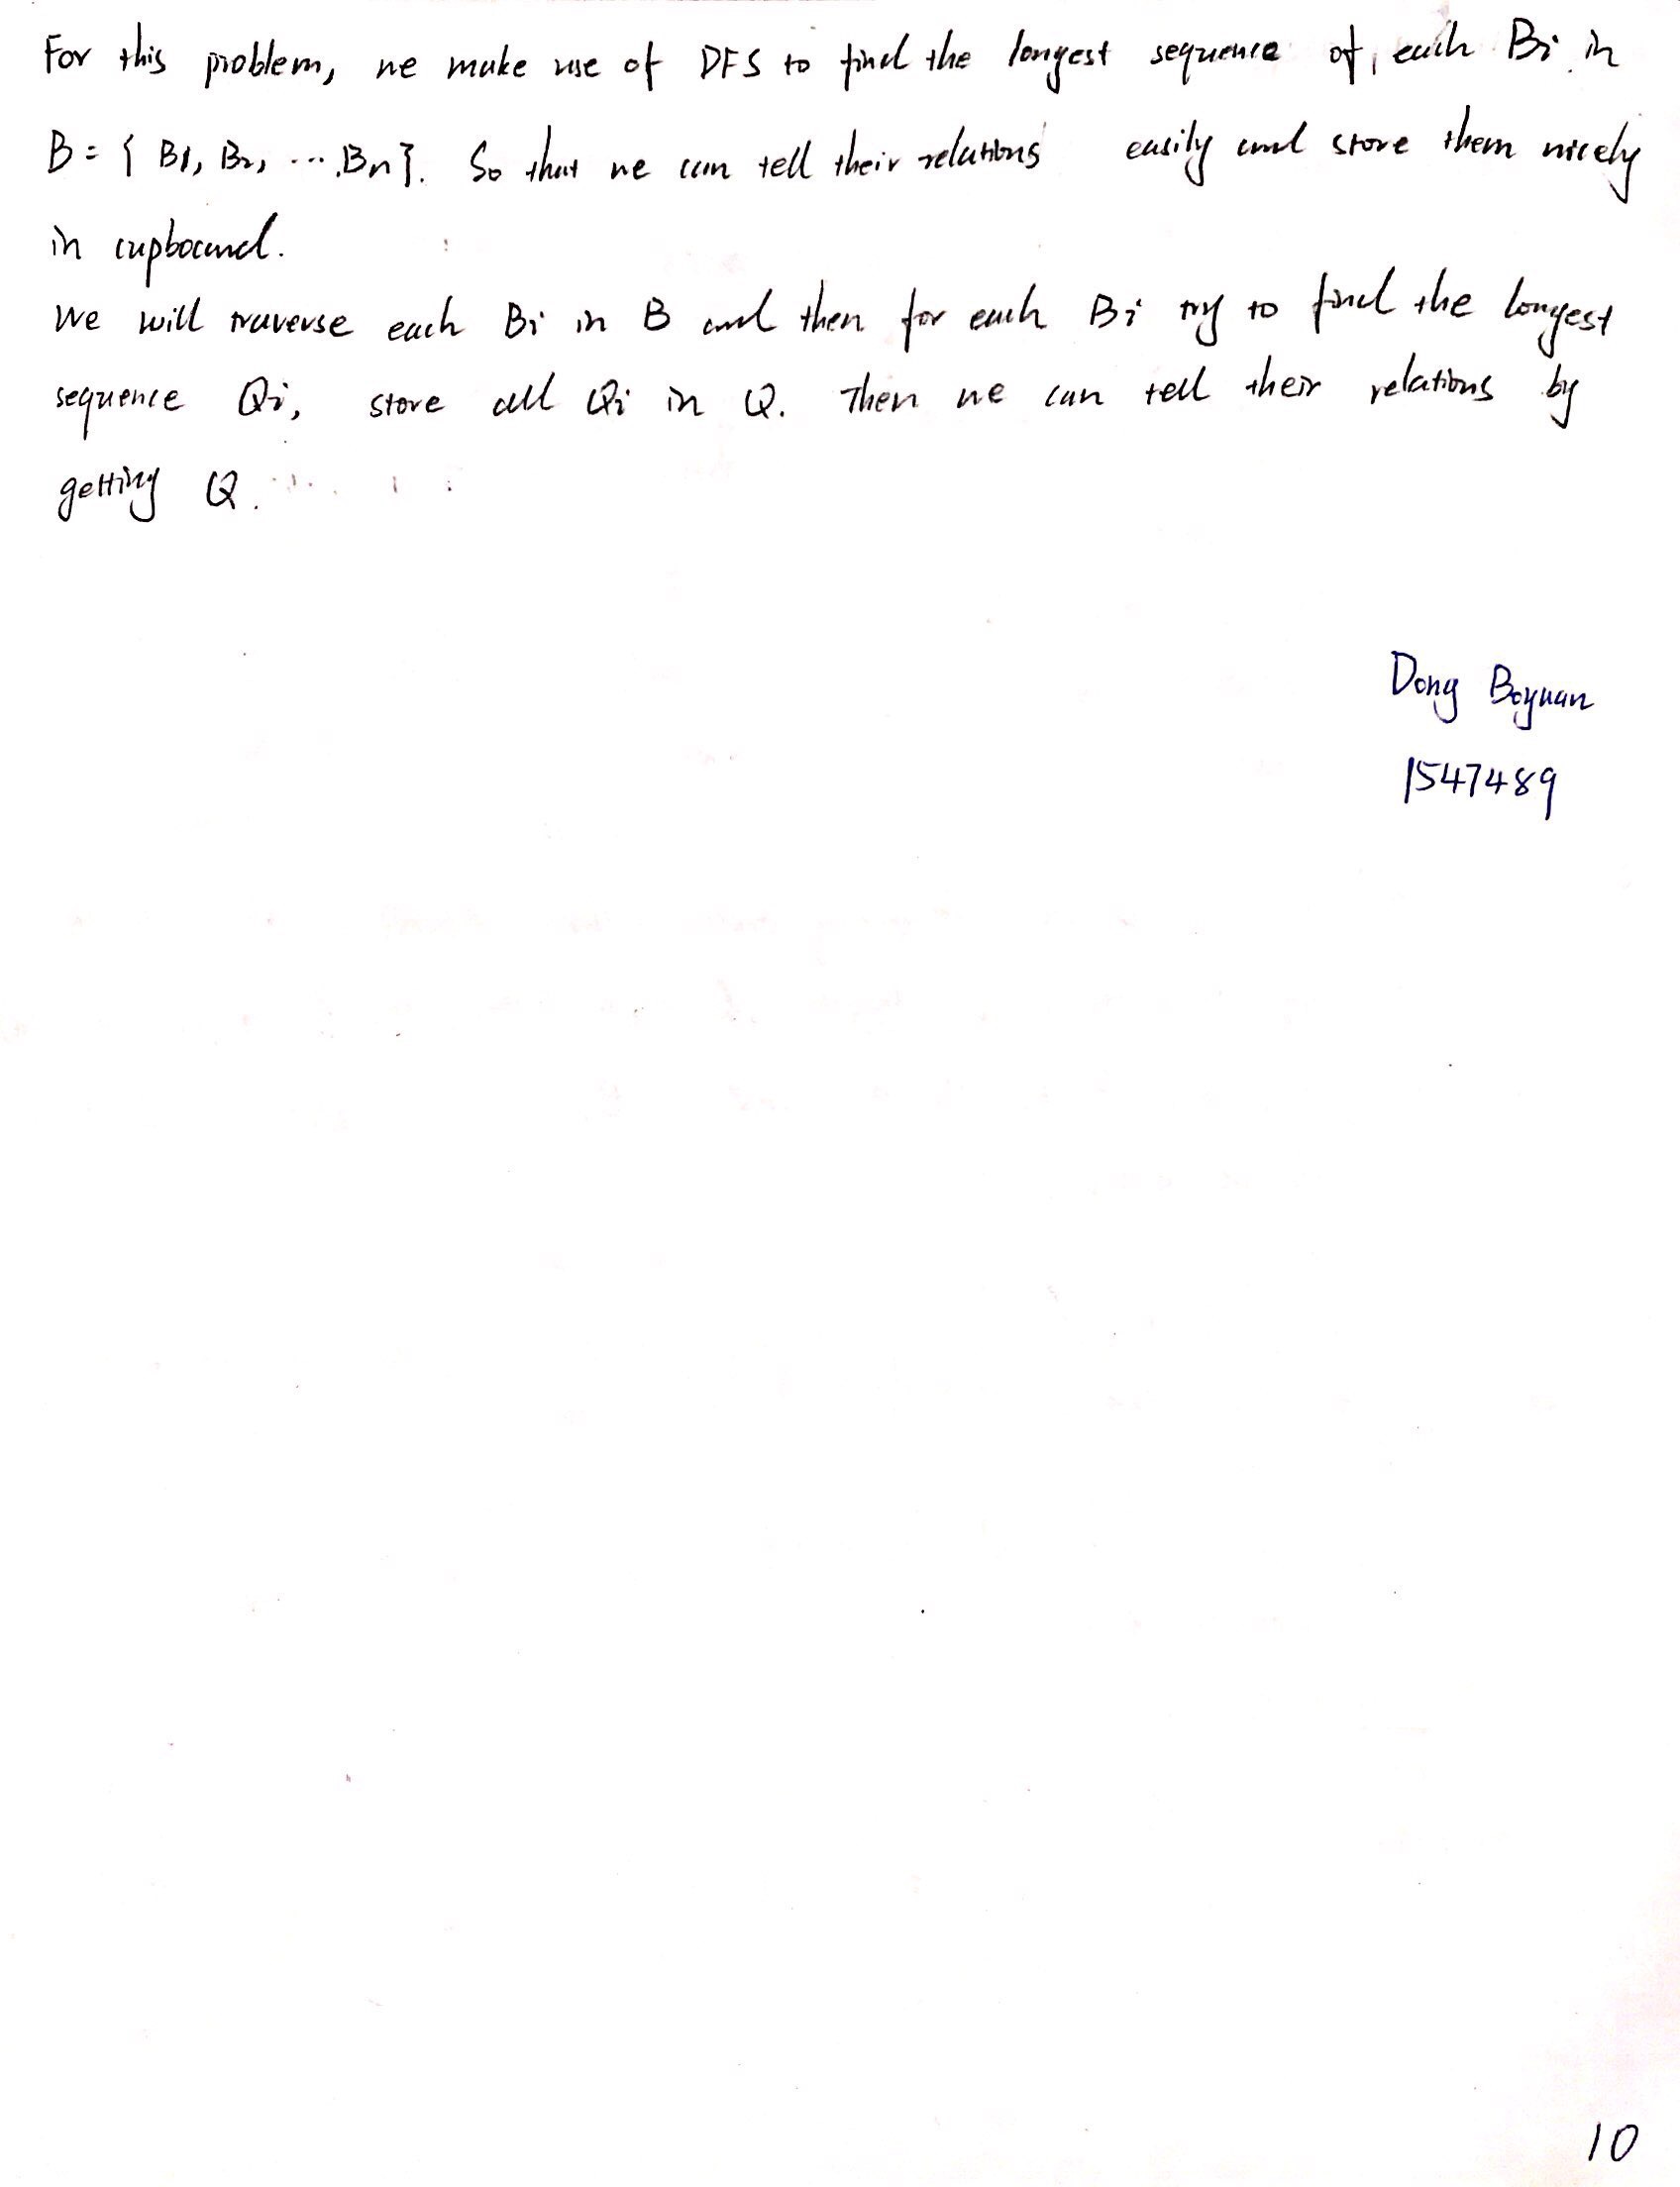 For this problem, we make use of DFS to find the longest sequence of each Bi in
B = { B1, B2, ... Bn }. So that we can tell their relations easily and store them nicely
in cupboand.
We will traverse each Bi in B and then for each Bi try to find the longest
sequence Qi, store all Qi in Q. Then we can tell their relations by
getting Q.
Dong Boyuan
1547489
10